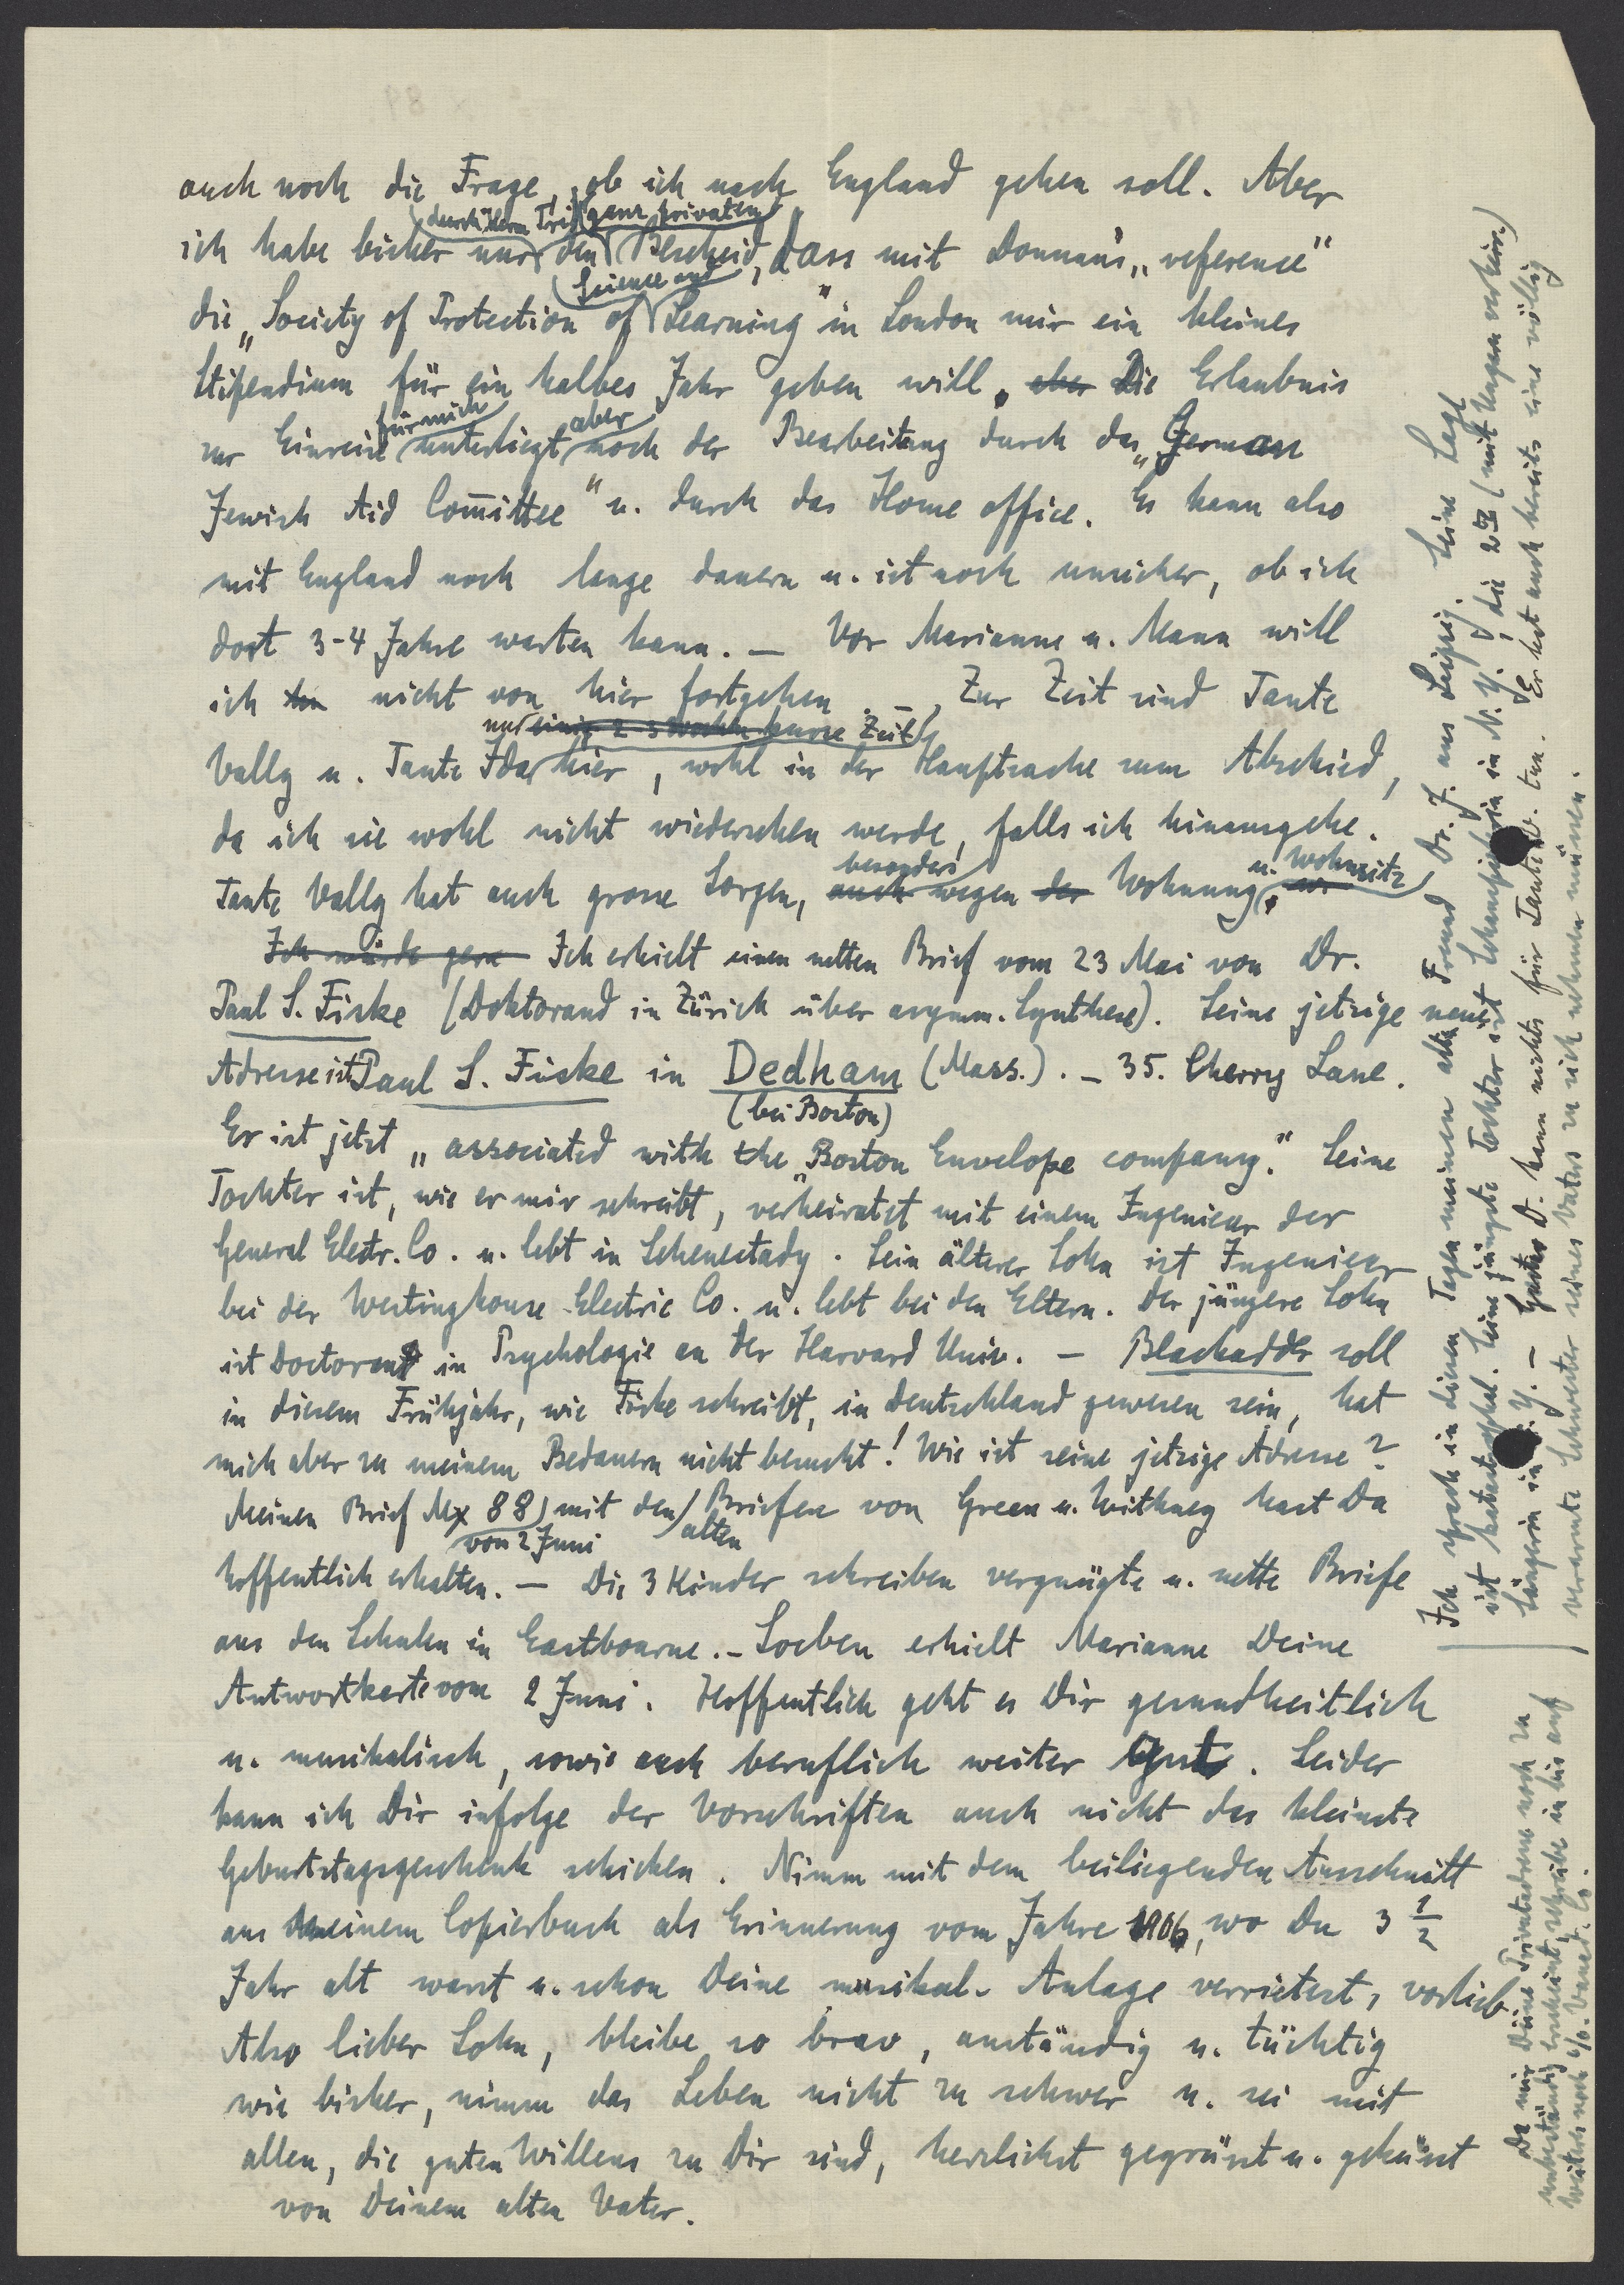 auch noch die Frage, ob ich nach England gehen soll. Aber
durch Herrn ganz privaten
ich habe bisher nur den Bescheid, dass mit Donnan's „reference"
Science and
die „Society of Protection of Learning" in London mir ein kleines
Stipendium für ein halbes Jahr geben will, aber Die Erlaubnis
für mich aber
zur Einreise unterliegt noch der Bearbeitung durch das „German
Jewish Aid Com̄ittee" u. durch das Home office. Es kann also
mit England noch lange dauern u. ist noch unsicher, ob ich
dort 3-4 Jahre warten kann. – Vor Marianne u. Mann will
ich nicht von hier fortgehen. – Zur Zeit sind Tante
nur einige 2-3 Wochen kurze Zeit
Vally u. Tante Ida hier, wohl in der Hauptsache zum Abschied,
da ich sie wohl nicht wiedersehen werde, falls ich hinausgehe.
besonders u. Wohnsitz
Tante Vally hat auch grosse Sorgen, auch wegen der Wohnung,
Ich würde gern Ich erhielt einen netten Brief vom 23 Mai von Dr.
Paul S. Fiske (Doktorand in Zürich über asymm. Synthese). Seine jetzige neue
Adresse ist Paul S. Fiske in Dedham (Mass.). – 35. Cherry Lane.
(bei Boston)
Er ist jetzt „associated with the „Boston Envelope company." Seine
Tochter ist, wie er mir schreibt, verheiratet mit einem Ingenieur der
General Electr. Co. u. lebt in Schenectady. Sein älterer Sohn ist Ingenieur
bei der Westinghouse Electric Co. u. lebt bei den Eltern. Der jüngere Sohn
ist Doctorand in Psychologie an der Harvard Univ. – Blackadder soll
in diesem Frühjahr, wie Fiske schreibt, in Deutschland gewesen sein, hat
mich aber zu meinem Bedauern nicht besucht! Wie ist seine jetzige Adresse?
Meinen Brief Mx 88 mit den Briefen von Green u. Withney hast Du
von 2 Juni alten
hoffentlich erhalten. – Die 3 Kinder schreiben vergnügte u. nette Briefe
aus den Schulen in Eastbourne. – Soeben erhielt Marianne Deine
Antwortkarte vom 2 Juni. Hoffentlich geht es Dir gesundheitlich
u. musikalisch, sowie auch beruflich weiter gut. Leider
kann ich Dir infolge der Vorschriften auch nicht das kleinste
Geburtstagsgeschenk schicken. Nimm mit dem beiliegenden Ausschnitt
aus meinem Copierbuch als Erinnerung vom Jahre 1906, wo Du 3 1/2
Jahr alt warst u. schon Deine musikal. Anlage verrietest, vorlieb.
Also lieber Sohn, bleibe so brav, anständig u. tüchtig
wie bisher, nimm das Leben nicht zu schwer u. sei mit
allen, die guten Willens zu Dir sind, herzlichst gegrüsst u. geküsst
von Deinem alten Vater.
Ich sprach in diesen Tagen meinen alten Freund Dr. J. aus Leipzig. Seine Lage
ist katastrophal. Seine jüngste Tochter ist Schauspielerin in N.Y., die 2te (mit Ungarn verheir.)
Sängerin in N.Y. – Gustav D. kann nichts für Tante V. tun. Er hat auch bereits eine völlig
verarmte Schwester seines Vaters zu sich nehmen müssen.
Da mir Deine Privatadresse noch zu
unbeständig erscheint, schreibe ich bis auf
weiteres noch c/o. Vanad. Co.